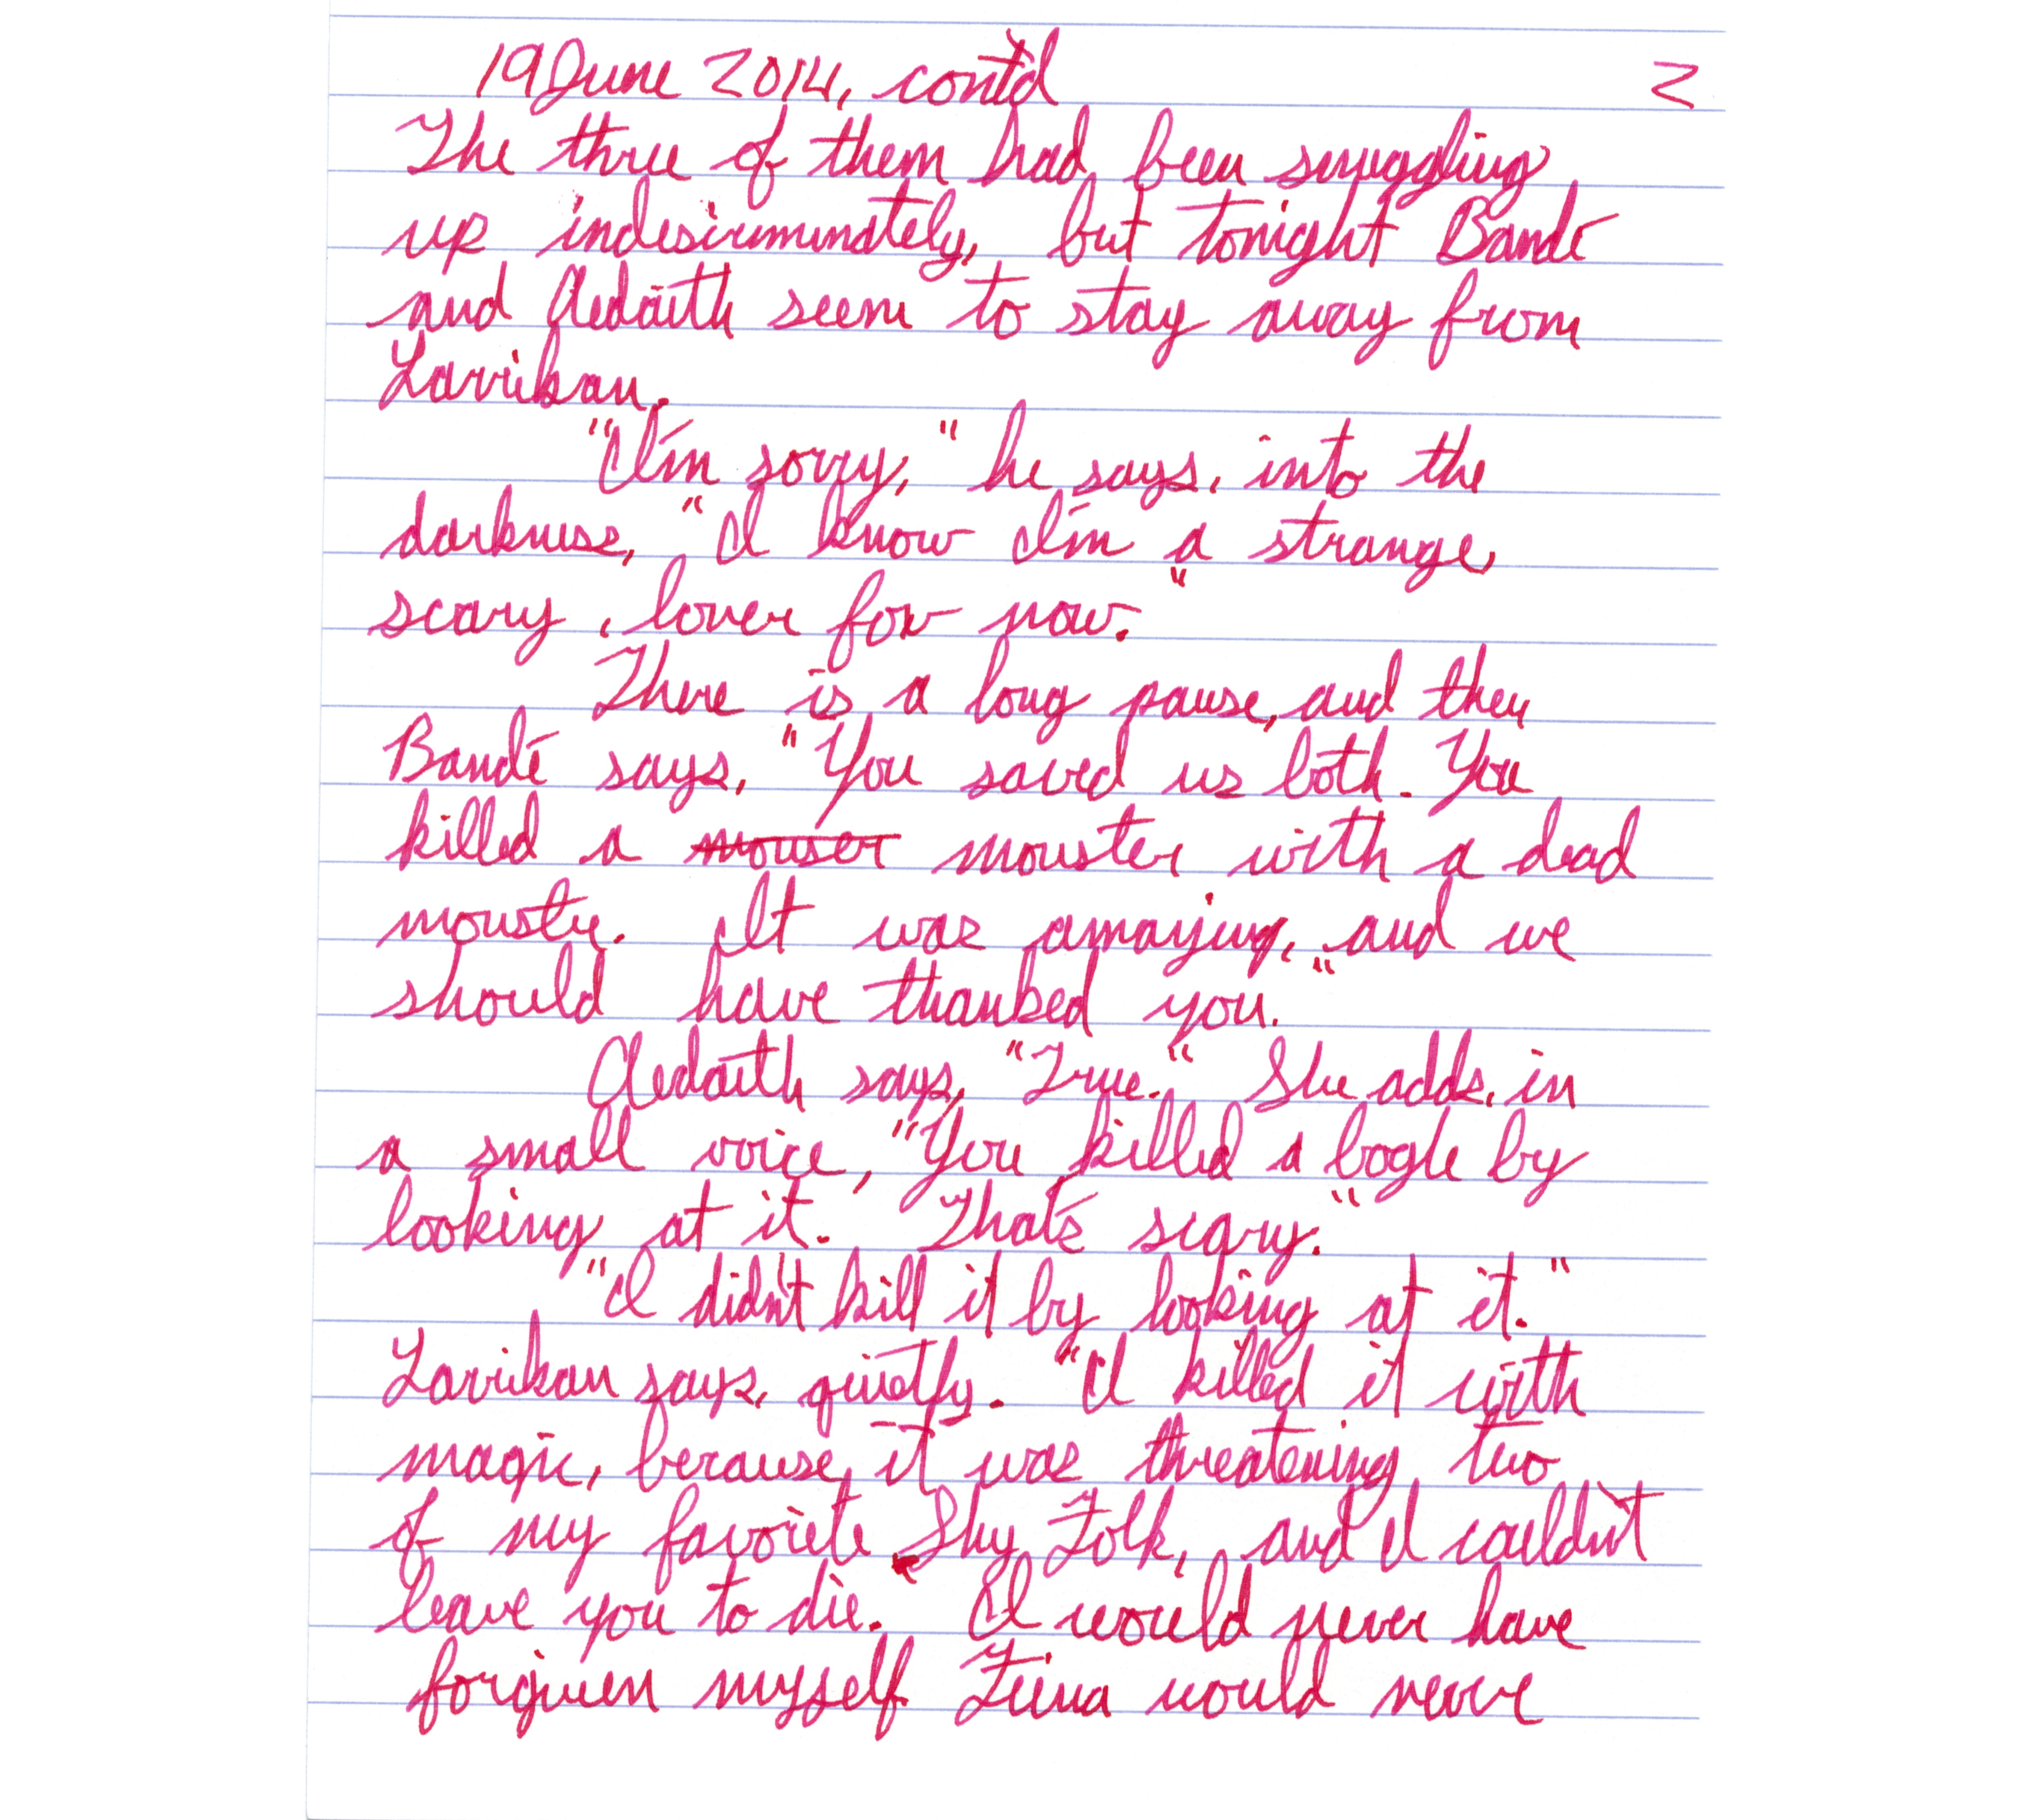 19 June 2014, cont'd 2
The three of them had been snuggling
up indiscriminately, but tonight Bandé
and Aedaith seem to stay away from
Lavrikan.
"I'm sorry," he says, into the
darkness, "I know I'm a strange,
scary, lover for now."
There is a long pause, and then
Bandé says, "You saved us both. You
killed a mouser monster with a dead
monster. It was amazing, and we
should have thanked you."
Aedaith says, "True." She adds, in
a small voice, "You killed a bogle by
looking at it. That's scary."
"I didn't kill it by looking at it."
Lavrikan says, quietly. "I killed it with
magic, because it was threatening two
of my favorite Shy Folk, and I couldn't
leave you to die. I would never have
forgiven myself. Fiina would never